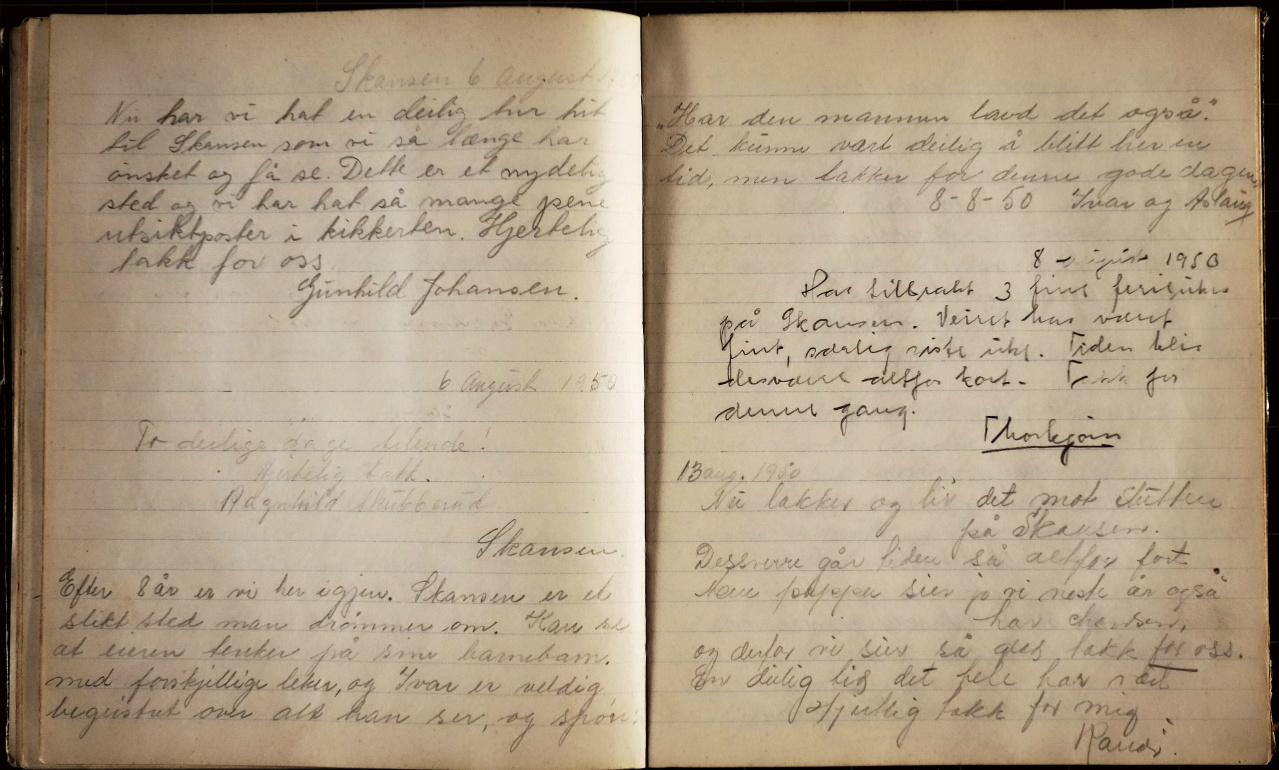 Skansen 6 August
Nu har vi hat en deilig tur hit
til Skansen som vi så længe har
ønsket og få se. Dette er et nydelig
sted og vi har hat så mange pene
utsiktposter i kikkerten. Hjertelig
takk for oss
Gunhild Johansen.
6 August 1950
To deilige dage tilende!
Hjertelig takk.
Ragnhild Skubberud
Skansen.
Efter 8 år er vi her igjen. Skansen er et
slikt sted man drømmer om. Kan se
at eieren tenker på sine barnebarn.
med forskjellige leker, og Ivar er veldig
begeistret over alt han ser, og spør:
„Har den mannen lavd det også."
Det kunne vært deilig å blitt her en
tid, men takker for denne gode dagen.
8-8-50 Ivar og Aslaug
8 - august 1950
Har tilbrakt 3 fine ferieuker
på Skansen. Veiret har vært
fint, særlig siste uke. Tiden blir
desværre altfor kort - Takk for
denne gang.
Thorbjørn
13 aug. 1950
Nu lakker og lir det mot slutten
på Skansen.
Dessverre går tiden så altfor fort
pappa sier jo vi neste år også
har chansen,
og derfor vi sier så glad takk for oss.
En deilig tid det hele har vært
Hjertlig takk for mig
Randi.